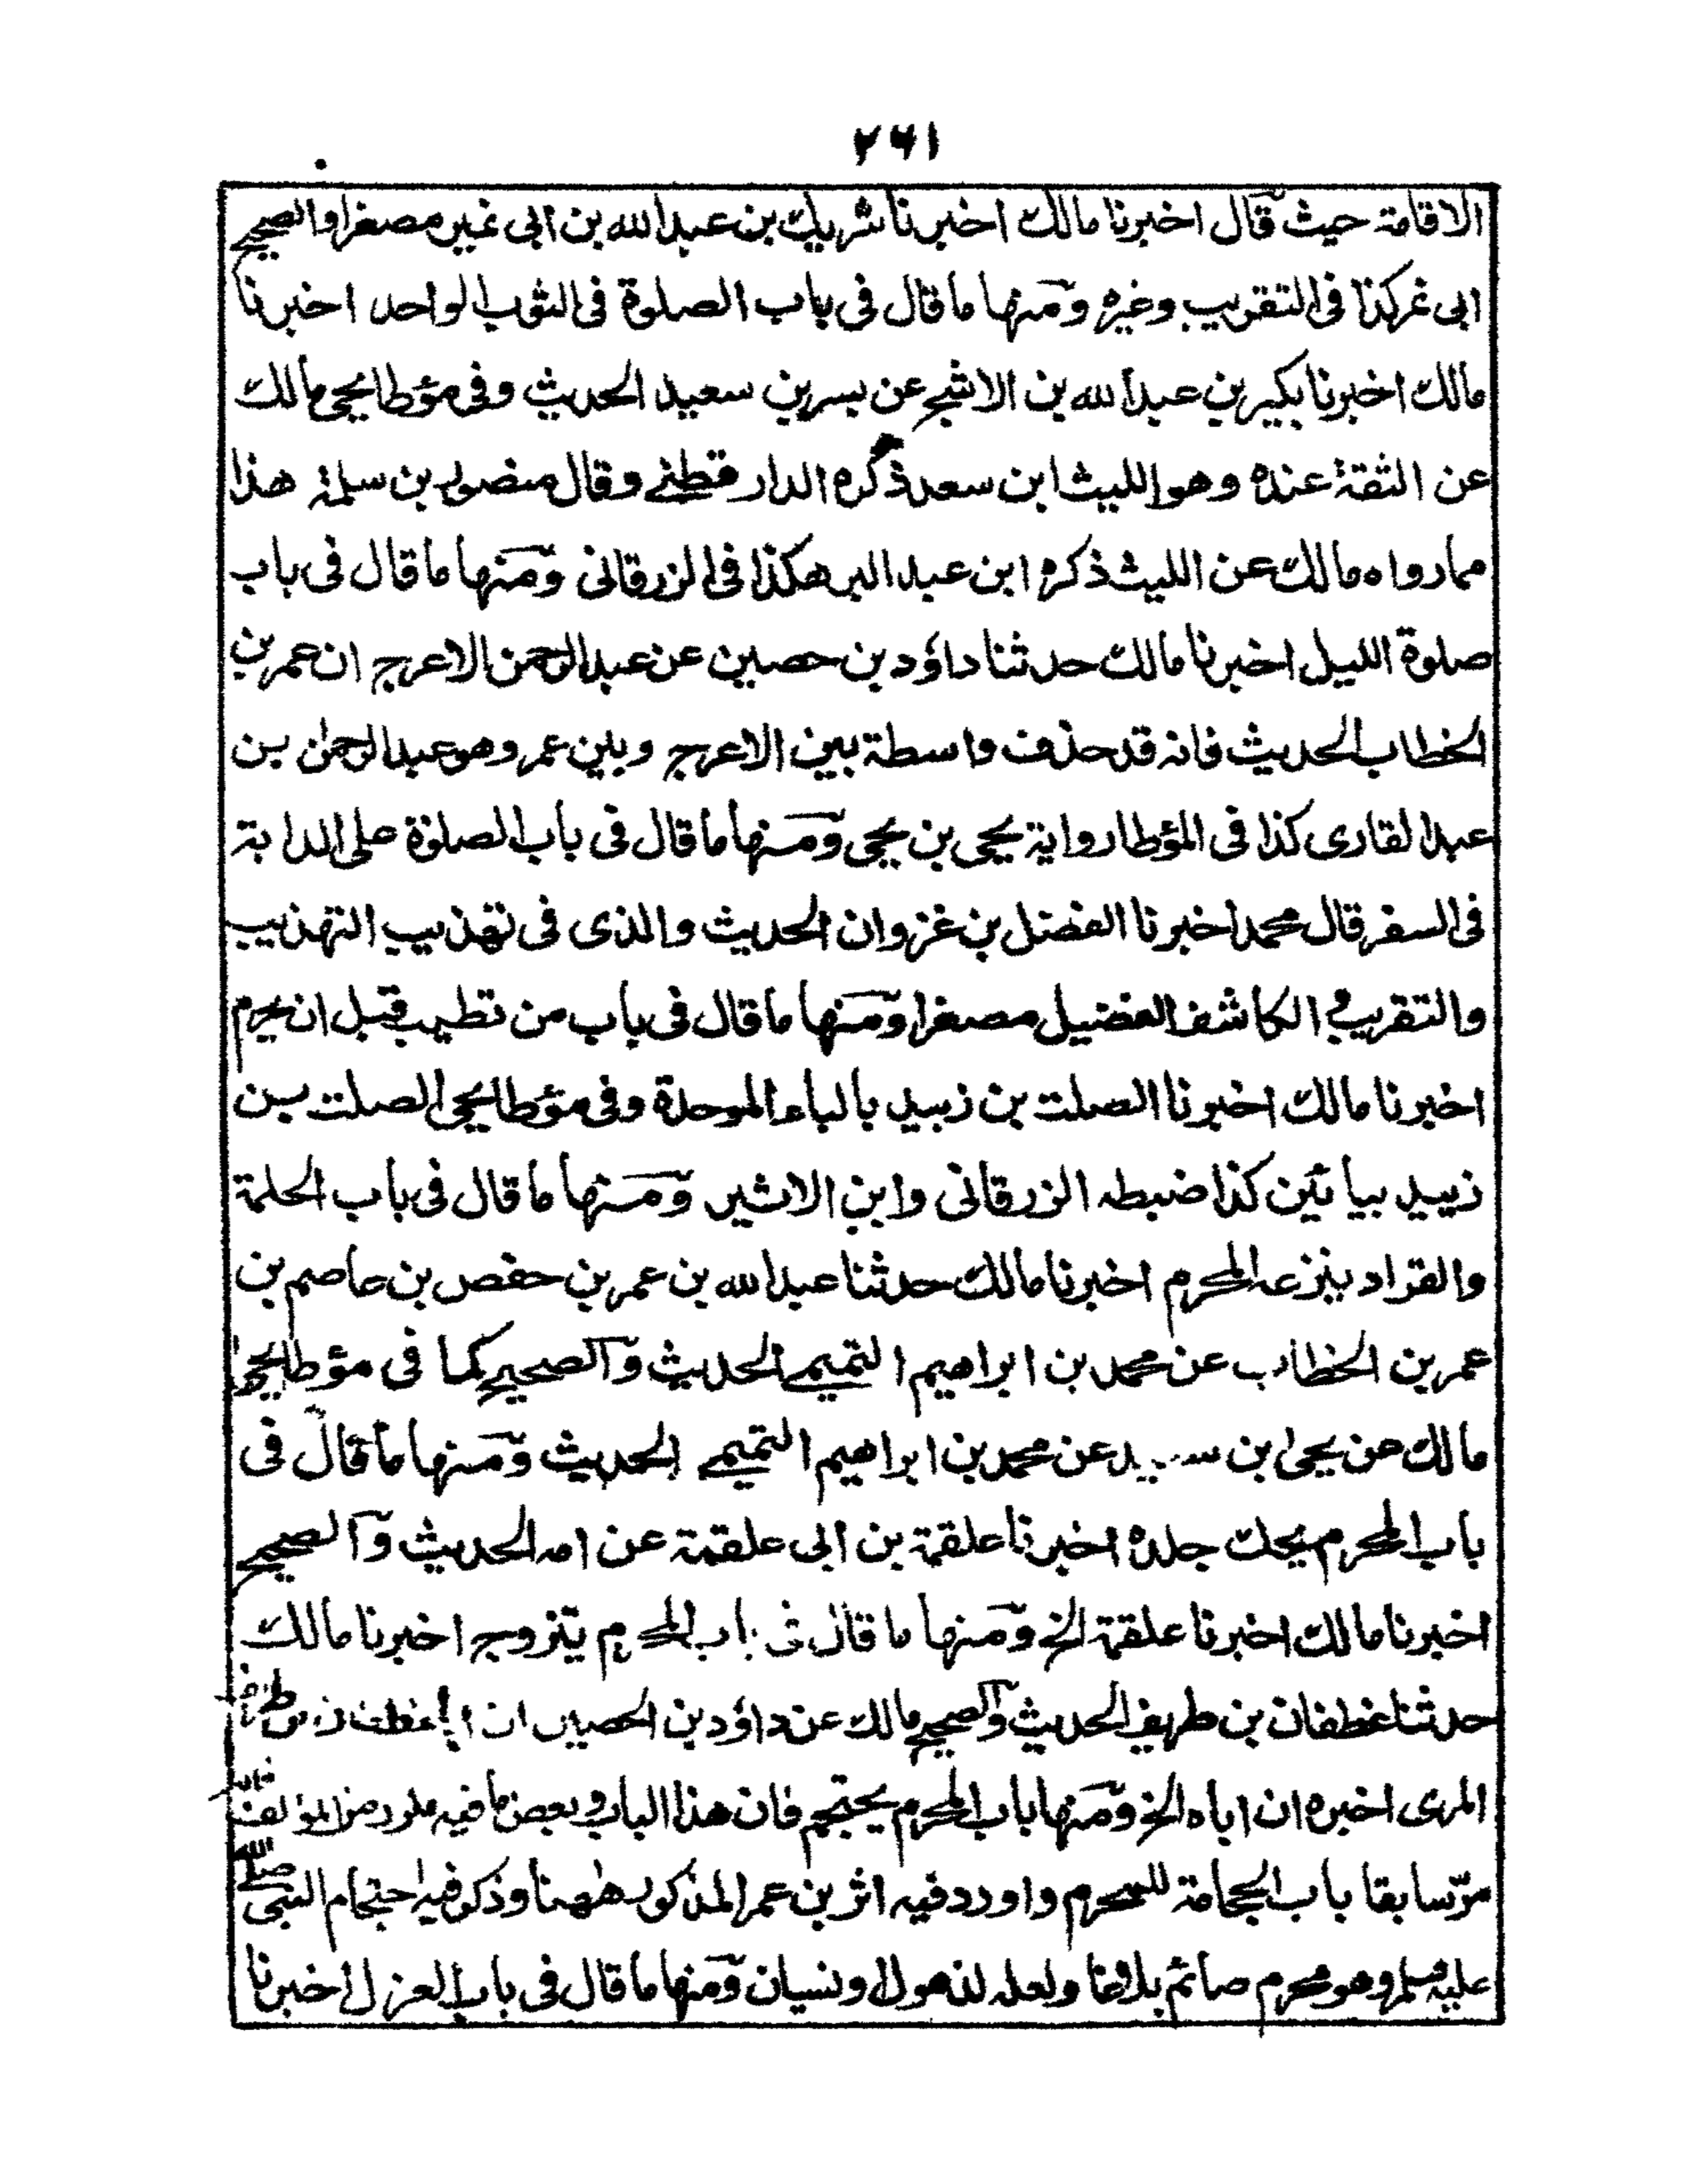 ٢٦١
الاقامة حيث قال اخبرنا مالك اخبرنا شريك بن عبد الله بن ابى نمير مصغرا والصحيح
ابى نمر كذا فى التقريب وغيره ومنها ما قال فى باب الصلوة فى الثوب الواحد اخبرنا
مالك اخبرنا بكير بن عبد الله بن الاشج عن بسر بن سعيد الحديث وفى مؤطا يحيى مالك
عن الثقة عنده وهو الليث ابن سعد ذكره الدار قطنے وقال منصور بن سلمة هذا
مما رواه مالك عن الليث ذكره ابن عبد البر هكذا فى الزرقانى ومنها ما قال فى باب
صلوة الليل اخبرنا مالك حدثنا داؤد بن حصين عن عبد الرحمن الاعرج ان عمر بن
الخطاب الحديث فانه قد حذف واسطة بين الاعرج وبين عمر وهو عبد الرحمن بن
عبد القارى كذا فى المؤطا رواية يحيى بن يحيى ومنها ما قال فى باب الصلوة على الدابة
فى السفر قال محمد اخبرنا الفضل بن غزوان الحديث والذى فى تهذيب التهذيب
والتقريب و الكاشف الفضيل مصغرا ومنها ما قال فى باب من تطيب قبل ان يحرم
اخبرنا مالك اخبرنا الصلت بن زبيد بالباء الموحدة وفى مؤطا يحيى الصلت بن
زييد بيائين كذا ضبطه الزرقانى وابن الاثير ومنها ما قال فى باب الحلمة
والقراد ينزعه المحرم اخبرنا مالك حدثنا عبد الله بن عمر بن حفص بن عاصم بن
عمر بن الخطاب عن محمد بن ابراهيم التميمے الحديث والصحيح كما فى مؤطا يحيى
مالك عن يحيى بن سعيد عن محمد بن ابراهيم التميمے الحديث ومنها ما قال فى
باب المحرم يحك جلده اخبرنا علقمة بن ابى علقمة عن امه الحديث والصحيح
اخبرنا مالك اخبرنا علقمة الخ ومنها ما قال فى باب المحرم يتزوج اخبرنا مالك
حدثنا غطفان بن طريف الحديث والصحيح مالك عن داؤد بن الحصين ان ابا غطفان بن طريف
المرى اخبره ان اباه الخ ومنها باب المحرم يحتجم فان هذا الباب وبعض ما فيه من المؤلف
مرّ سابقا باب الحجامة للمحرم واورد فيه اثر بن عمر المذكور ههنا وذكر فيه احتجام النبى صلى الله
عليه وسلم وهو محرم صائم بلاغا ولعله لذهول ونسيان ومنها ما قال فى باب العزل اخبرنا